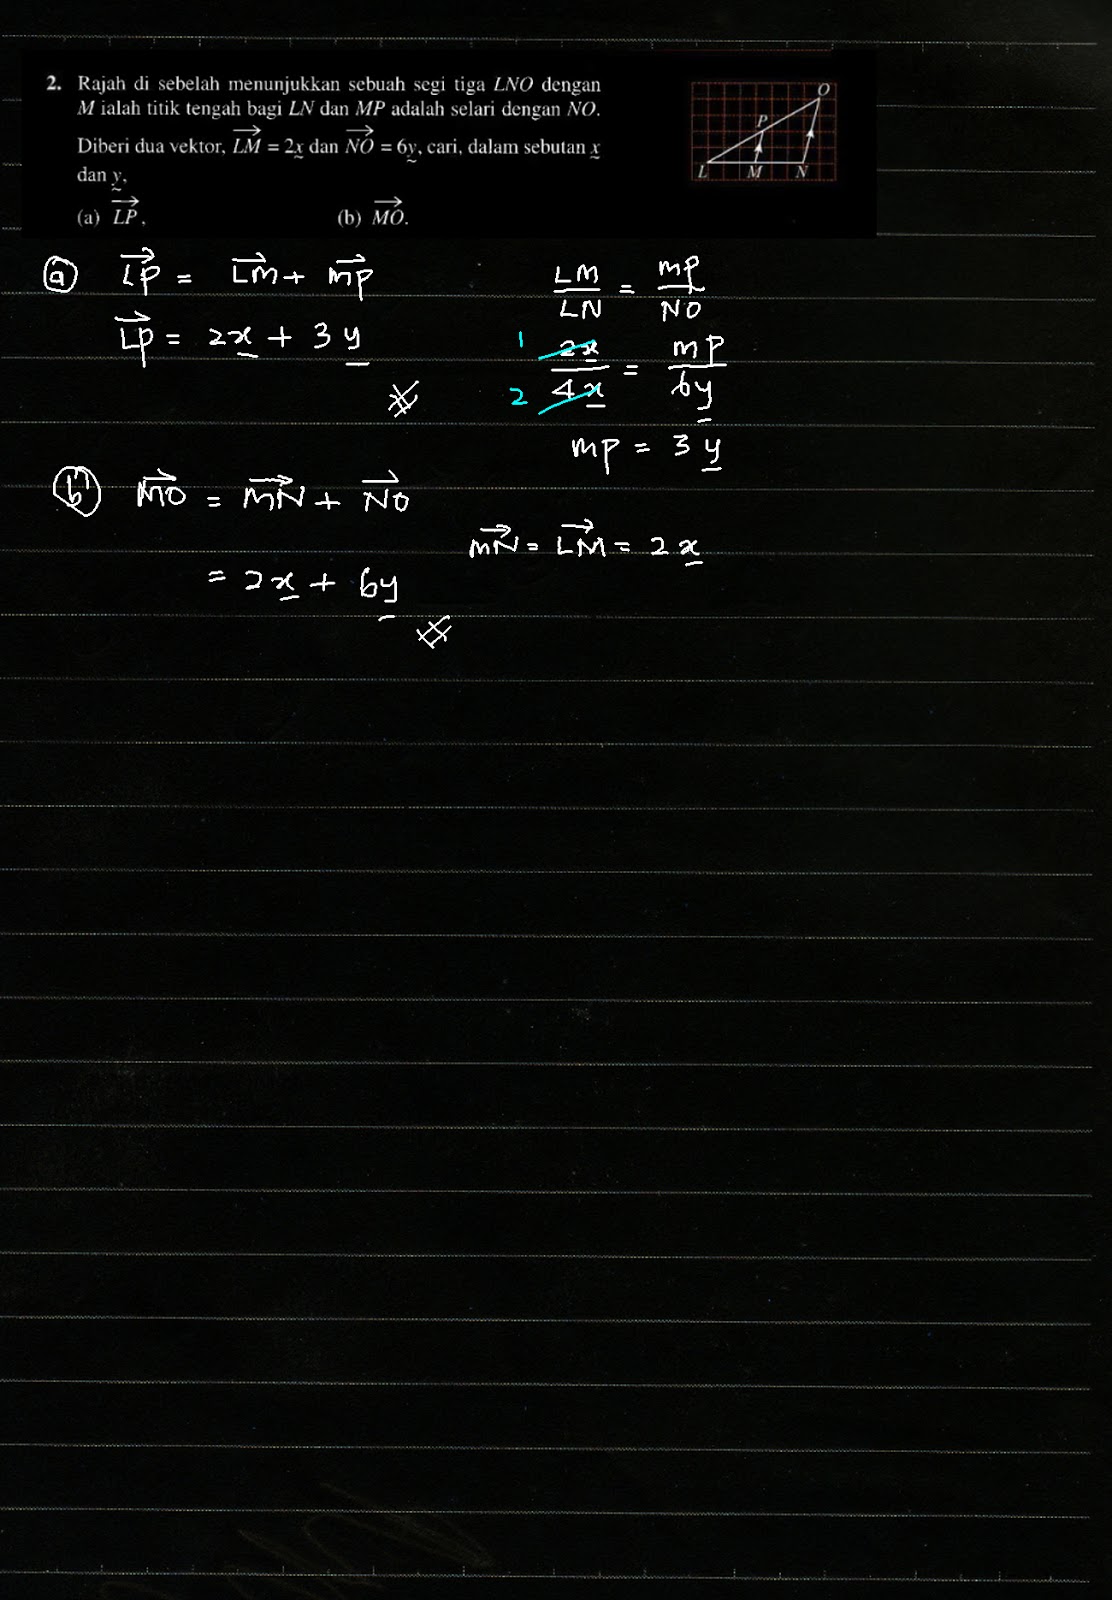 2. Rajah di sebelah menunjukkan sebuah segi tiga LNO dengan
M ialah titik tengah bagi LN dan MP adalah selari dengan NO.
Diberi dua vektor, LM = 2x dan NO = 6y, cari, dalam sebutan x
dan y,
(a) LP, (b) MO.
O
P
L M N
(a) LP = LM + MP
LP = 2x + 3y
LM/LN = MP/NO
1
2x/4x = MP/6y
2
MP = 3y
(b) MO = MN + NO
MN = LM = 2x
= 2x + 6y